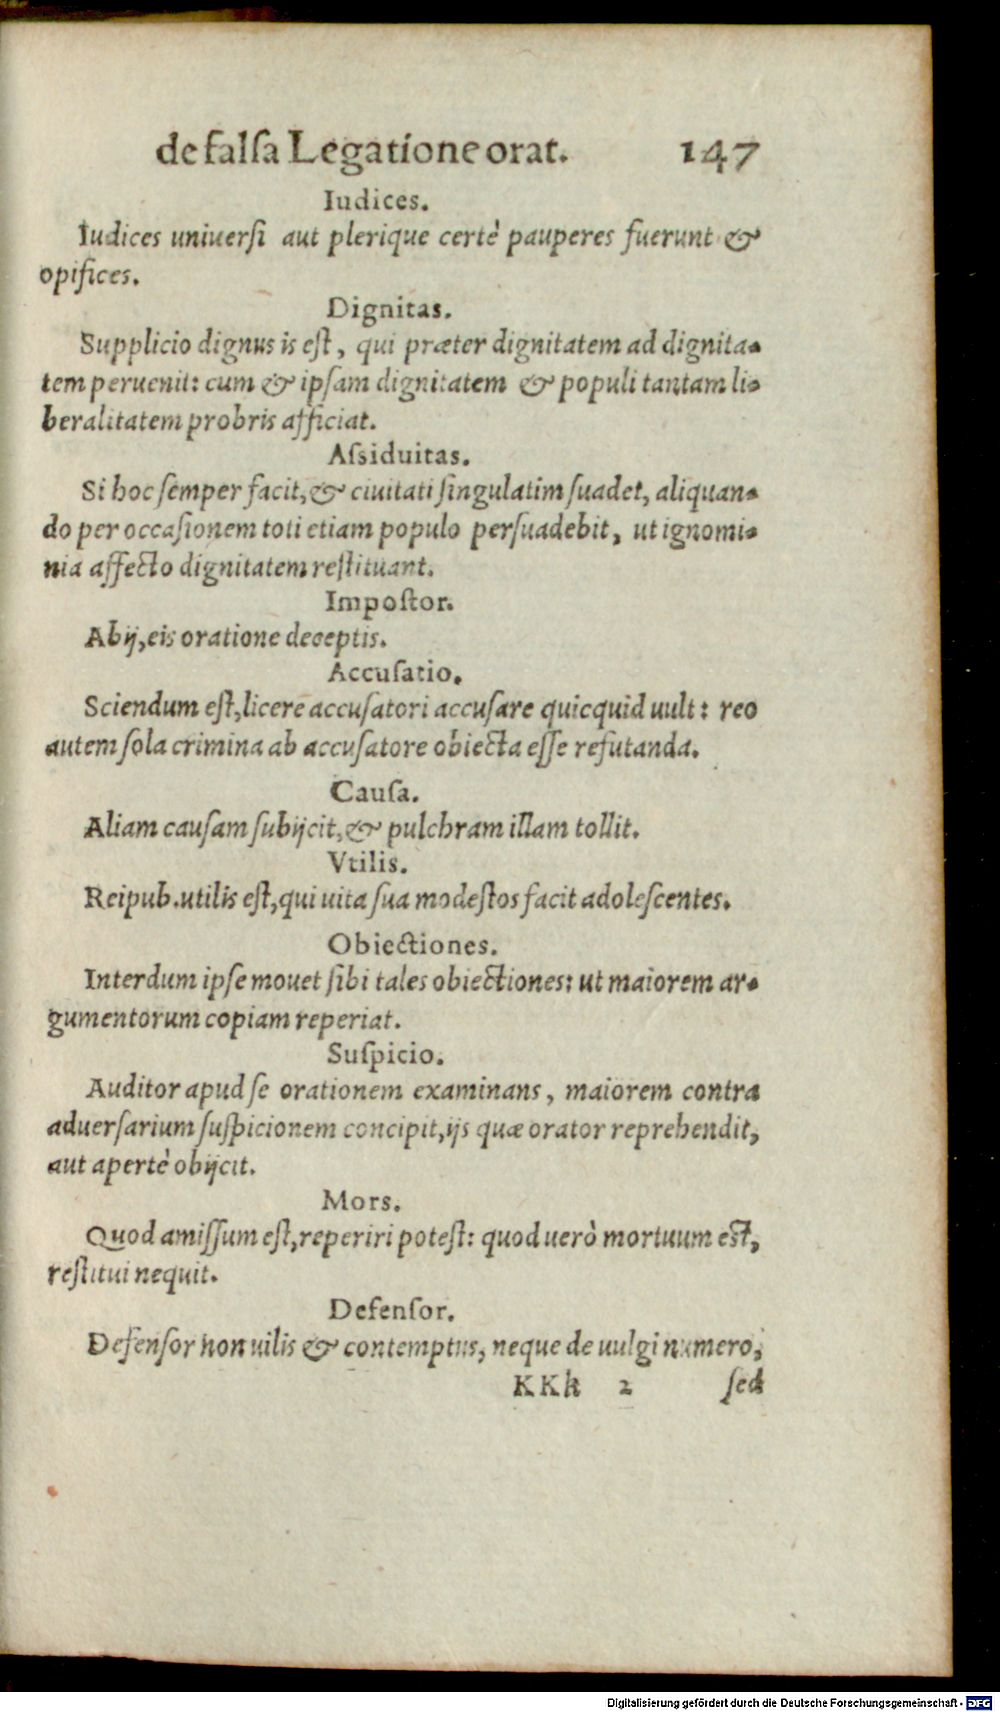 de falſa Legatione orat. 147
Iudices.
Iudices uniuerſi aut plerique certè pauperes fuerunt &
opifices.
Dignitas.
Supplicio dignus is eſt, qui præter dignitatem ad dignita-
tem peruenit: cum & ipſam dignitatem & populi tantam li-
beralitatem probris afficiat.
Aſsiduitas.
Si hoc ſemper facit, & ciuitati ſingulatim ſuadet, aliquan-
do per occaſionem toti etiam populo perſuadebit, ut ignomi-
nia affecto dignitatem reſtituant.
Impoſtor.
Abij, eis oratione deceptis.
Accuſatio.
Sciendum eſt, licere accuſatori accuſare quicquid uult: reo
autem ſola crimina ab accuſatore obiecta eſſe refutanda.
Cauſa.
Aliam cauſam ſubijcit, & pulchram illam tollit.
Vtilis.
Reipub. utilis eſt, qui uita ſua modeſtos facit adoleſcentes.
Obiectiones.
Interdum ipſe mouet ſibi tales obiectiones: ut maiorem ar-
gumentorum copiam reperiat.
Suſpicio.
Auditor apud ſe orationem examinans, maiorem contra
aduerſarium ſuſpicionem concipit, ijs quæ orator reprehendit,
aut apertè obijcit.
Mors.
Quod amiſſum eſt, reperiri poteſt: quod uerò mortuum eſt,
reſtitui nequit.
Defenſor.
Defenſor non uilis & contemptus, neque de uulgi numero,
KKk 2 ſed
Digitalisierung gefördert durch die Deutsche Forschungsgemeinschaft - DFG